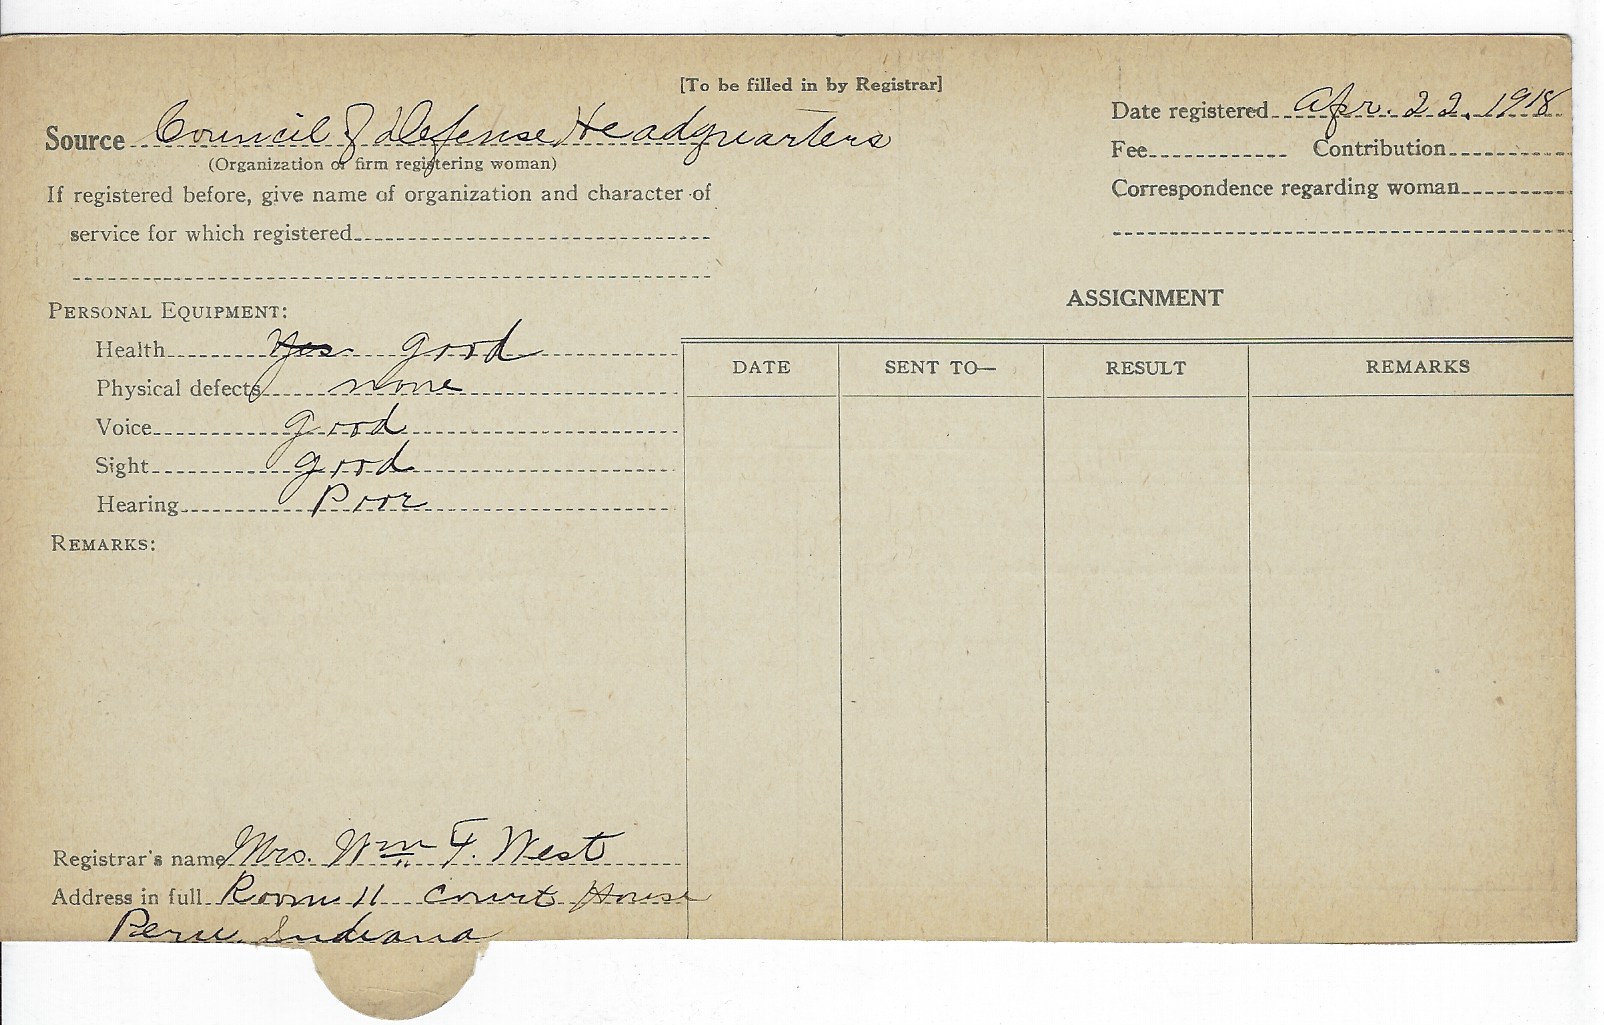 [To be filled in by Registrar]
Date registered Apr. 22, 1918
Source Council of Defense Headquarters
(Organization or firm registering woman)
Fee Contribution
If registered before, give name of organization and character of
Correspondence regarding woman
service for which registered
ASSIGNMENT
PERSONAL EQUIPMENT:
Health Yes good
Physical defects none
Voice good
Sight good
Hearing Poor
DATE SENT TO— RESULT REMARKS
REMARKS:
Registrar's name Mrs. Wm F. West
Address in full Room 11 Court House
Peru, Indiana